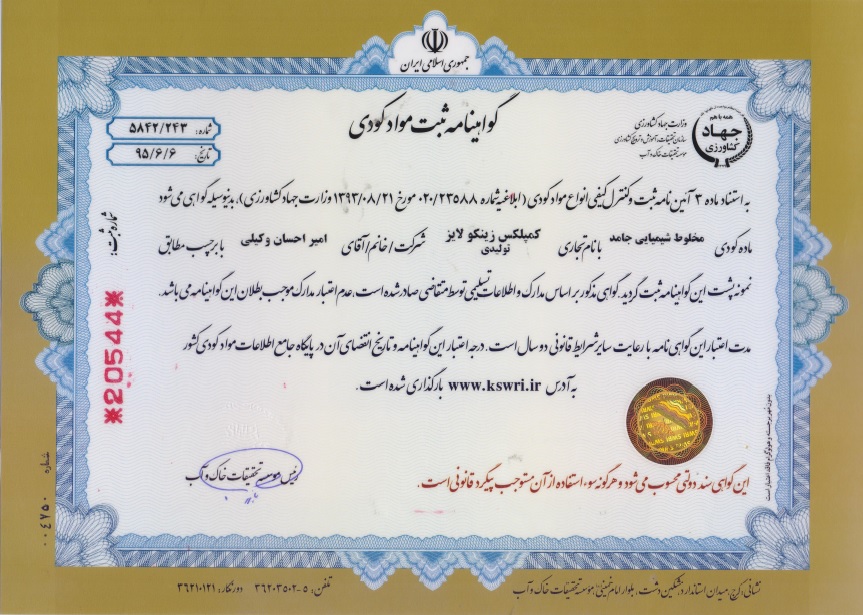 جمهوری اسلامی ایران
گواهینامه ثبت مواد کودی
شماره: ۵۸۴۲/۲۴۳
تاریخ: ۹۵/۶/۶
همه با هم
جهاد
کشاورزی
وزارت جهاد کشاورزی
سازمان تحقیقات، آموزش و ترویج کشاورزی
موسسه تحقیقات خاک و آب
به استناد ماده ۳ آئین نامه ثبت و کنترل کیفی انواع مواد کودی (ابلاغیه شماره ۰۲۰/۲۳۵۸۸ مورخ ۱۳۹۳/۰۸/۲۱ وزارت جهاد کشاورزی)، بدینوسیله گواهی می شود
ماده کودی مخلوط شیمیایی جامد با نام تجاری کمپلکس زینکو لایز تولیدی شرکت/خانم/آقای امیر احسان وکیلی با برچسب مطابق
نمونه پشت این گواهینامه ثبت گردید. گواهی مذکور بر اساس مدارک و اطلاعات تسلیمی توسط متقاضی صادر شده است، عدم اعتبار مدارک موجب بطلان این گواهینامه می باشد.
مدت اعتبار این گواهی نامه با رعایت سایر شرایط قانونی دو سال است. درجه اعتبار این گواهینامه و تاریخ انقضای آن در پایگاه جامع اطلاعات مواد کودی کشور
به آدرس www.kswri.ir بارگذاری شده است.
شماره ثبت:
*20544*
رئیس موسسه تحقیقات خاک و آب
این گواهی سند دولتی محسوب می شود و هرگونه سوء استفاده از آن مستوجب پیگرد قانونی است.
بدون مهر برجسته و هولوگرام فاقد اعتبار است
شماره ۰۰۴۷۵۰
نشانی: کرج، میدان استاندارد، مشکین دشت، بلوار امام خمینی، موسسه تحقیقات خاک و آب
تلفن: ۵-۳۶۲۰۳۵۰۲ دورنگار: ۳۶۲۱۰۱۲۱